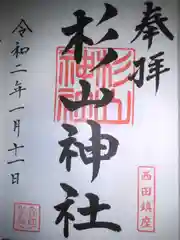 奉拝
杉山神社
令和二年一月十一日
西田鎮座